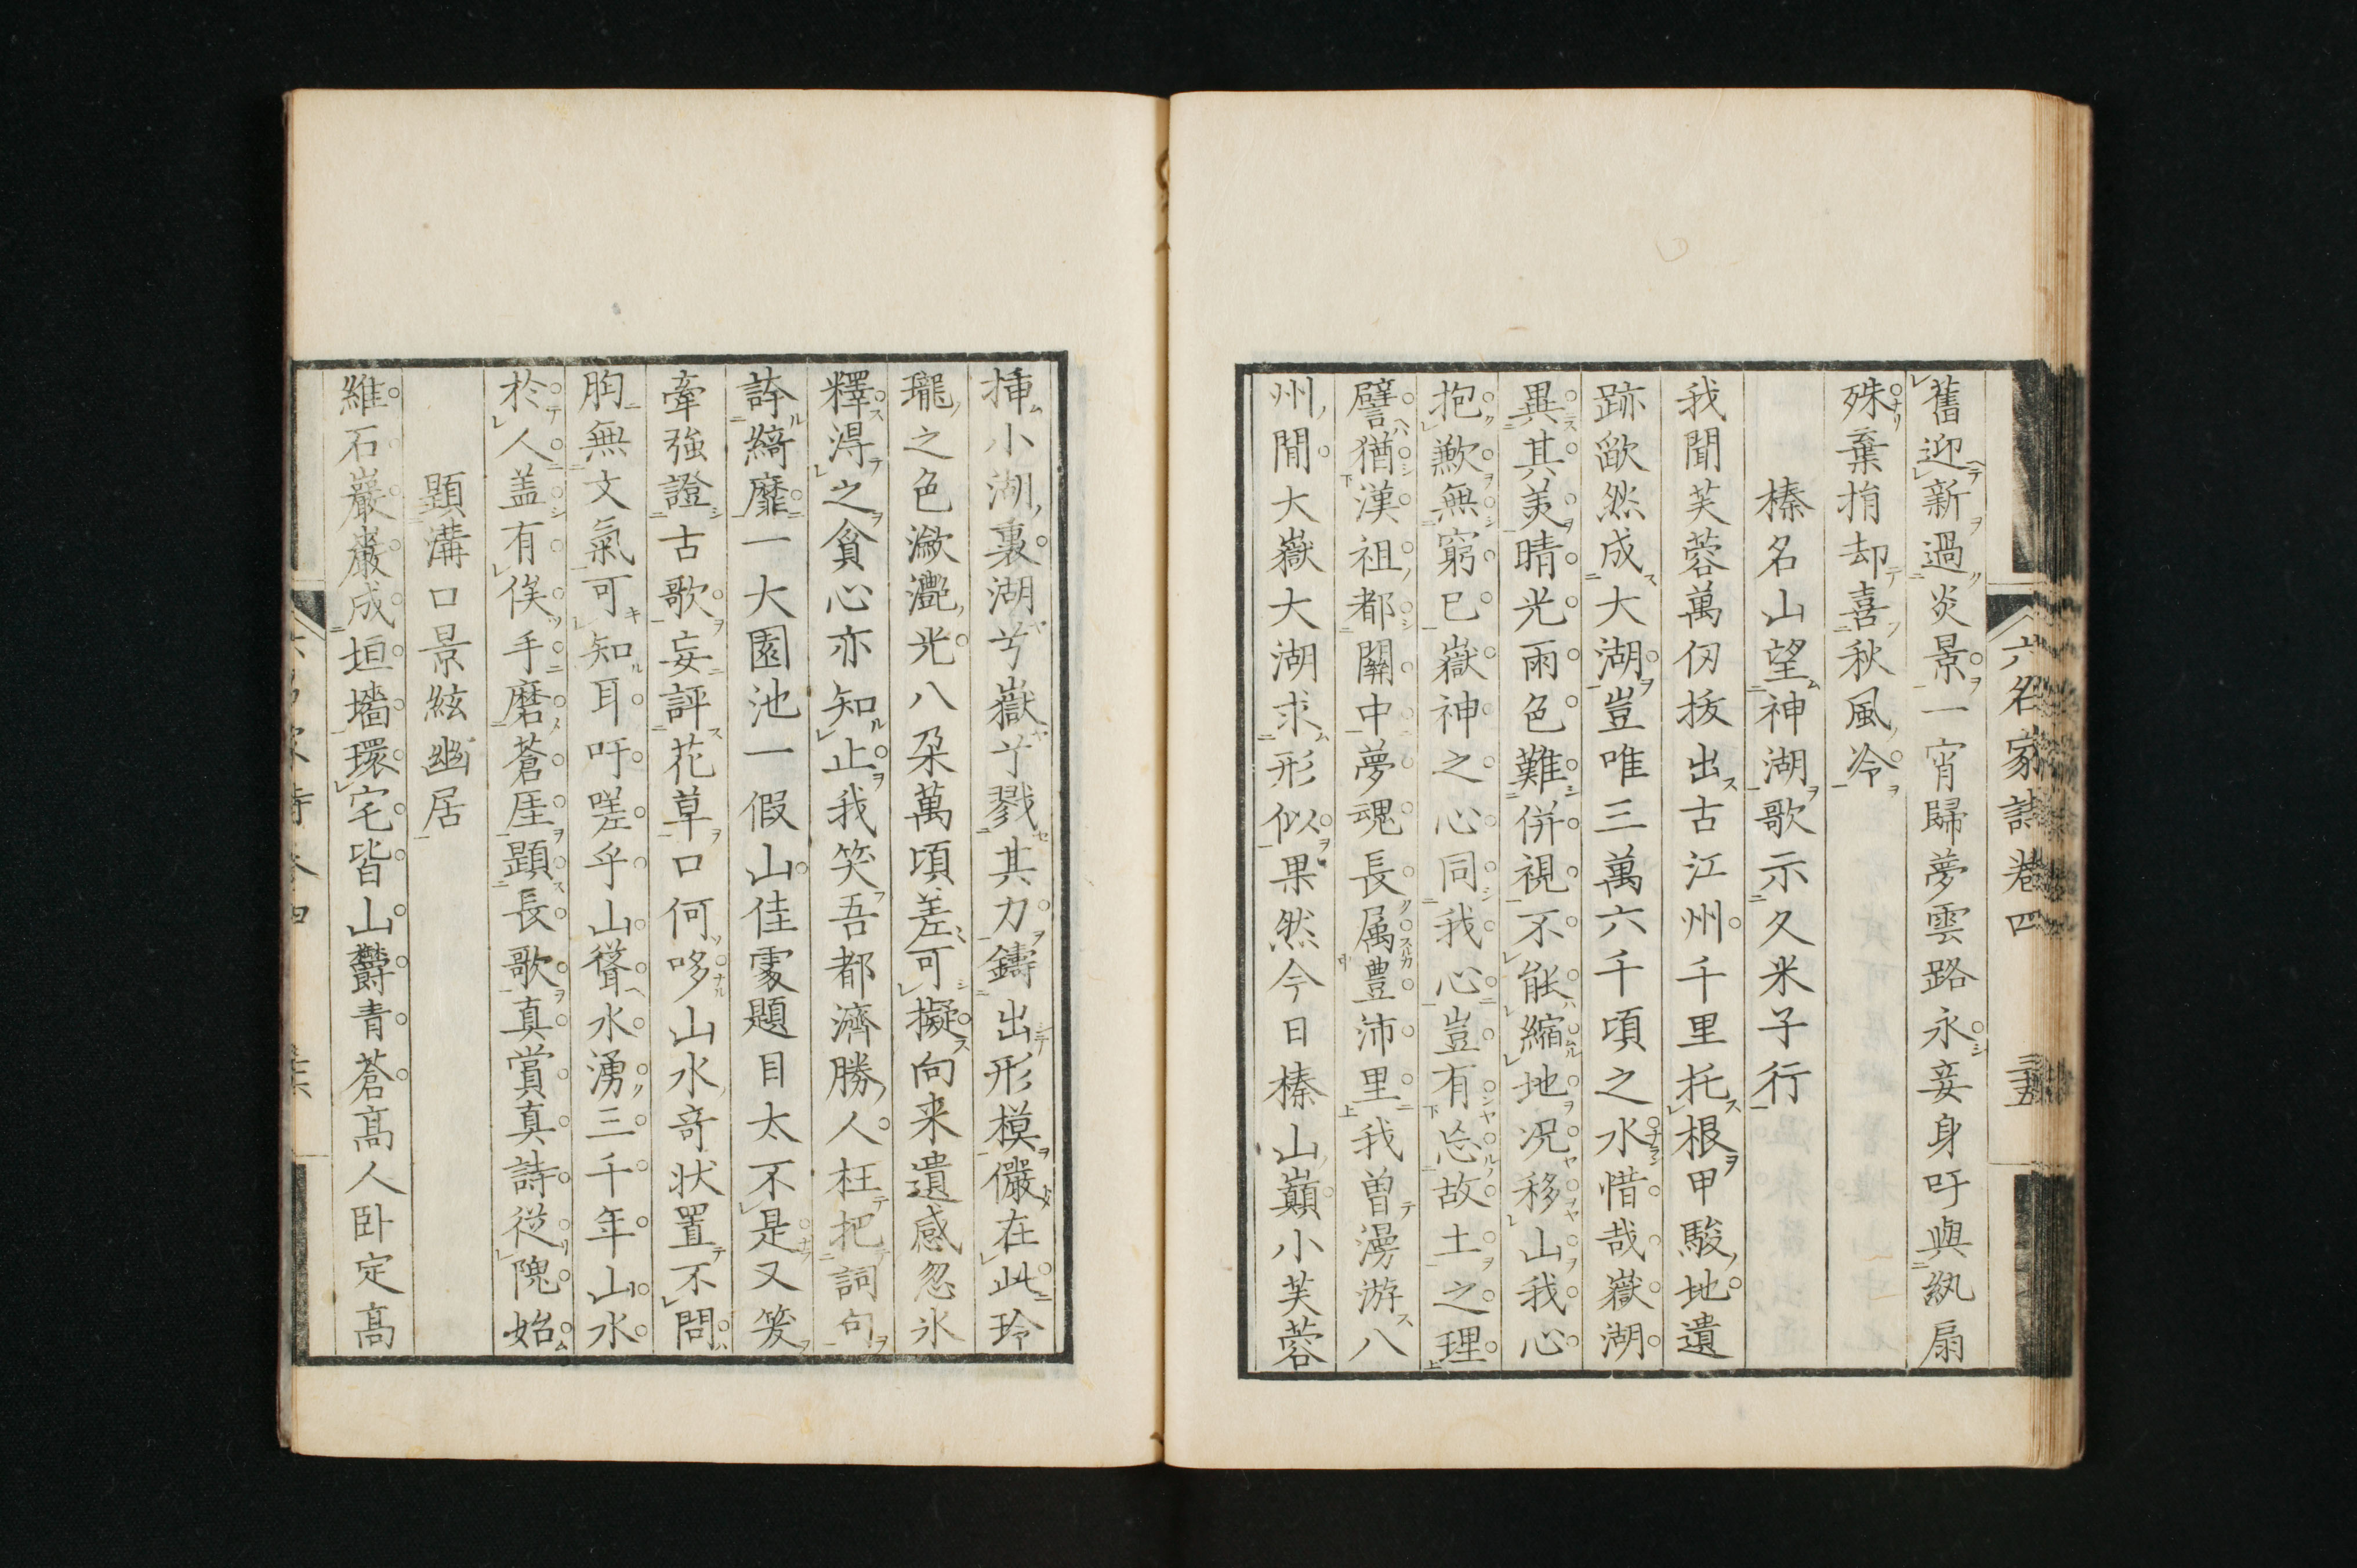 六名家詩卷四
舊迎新過炎景一宵歸夢雲路永妾身吁與紈扇
殊棄捐却喜秋風冷
榛名山望神湖歌示久米子行
我聞芙蓉萬仭抜出古江州千里托根甲駿地遺
跡歆然成大湖豈唯三萬六千頃之水惜哉嶽湖
異其美晴光雨色難併視不能縮地况移山我心
抱歉無窮已嶽神之心同我心豈有忘故土之理
譬猶漢祖都關中夢魂長属豊沛里我曽漫游八
州間大嶽大湖求形似果然今日榛山巔小芙蓉
挿小湖裏湖兮嶽兮戮其力鑄出形模儼在此玲
瓏之色瀲灧光八朶萬頃差可擬向来遺感忽氷
釋淂之貧心亦知止我笑吾都濟勝人枉把詞句
誇綺靡一大園池一假山佳處題目太不是又笑
牽強證古歌妄評花草口何哆山水竒状置不問
胸無文氣可知耳吁嗟乎山聳水湧三千年山水
於人盖有俟手磨蒼厓題長歌真賞真詩従隗始
題溝口景絃幽居
維石巖巖成垣墻環宅皆山欝青蒼髙人卧定髙